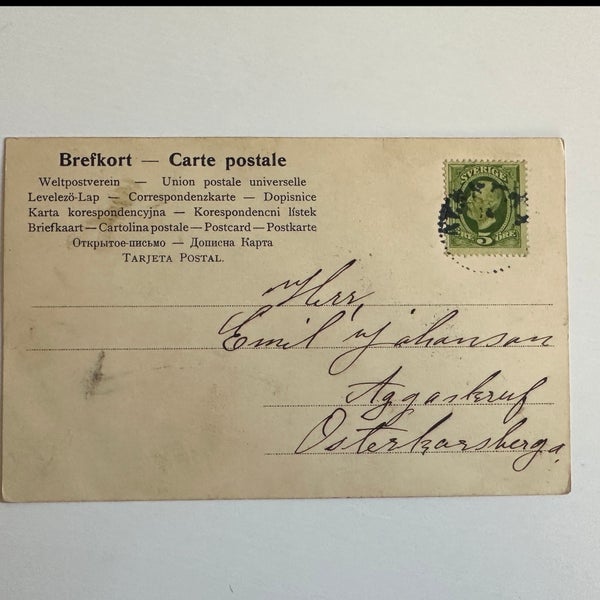 Brefkort — Carte postale
Weltpostverein — Union postale universelle
Levelező-Lap — Correspondenzkarte — Dopisnice
Karta korespondencyjna — Korespondencni lístek
Briefkaart — Cartolina postale — Postcard — Postkarte
Открытое-письмо — Дописна Карта
TARJETA POSTAL.
SVERIGE
5
ÖRE
Herr,
Emil Johanson
Aggaskruf
Osterkorsberga